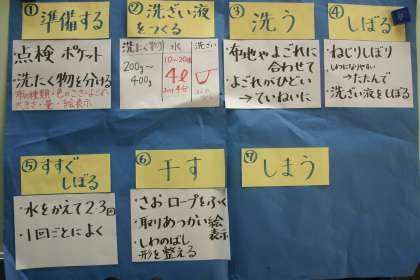 ① 準備する
点検 ポケット
洗たく物を分ける
布の種類・色のこさ・よごれ
大きさ・量・絵表示
② 洗ざい液
をつくる
洗たく物 水 洗ざい
200g〜 10〜20倍
400g 4ℓ
③ 洗う
・布地やよごれに
合わせて
・よごれがひどい
→ていねいに
④ しぼる
・ねじりしぼり
・しわになりやすい
→たたんで
・洗ざい液をしぼる
⑤ すすぐ
しぼる
・水をかえて2 3回
・1回ごとによく
⑥ 干す
・さおロープをふく
・取りあつかい絵
表示
・しわのばし
形を整える
⑦ しまう